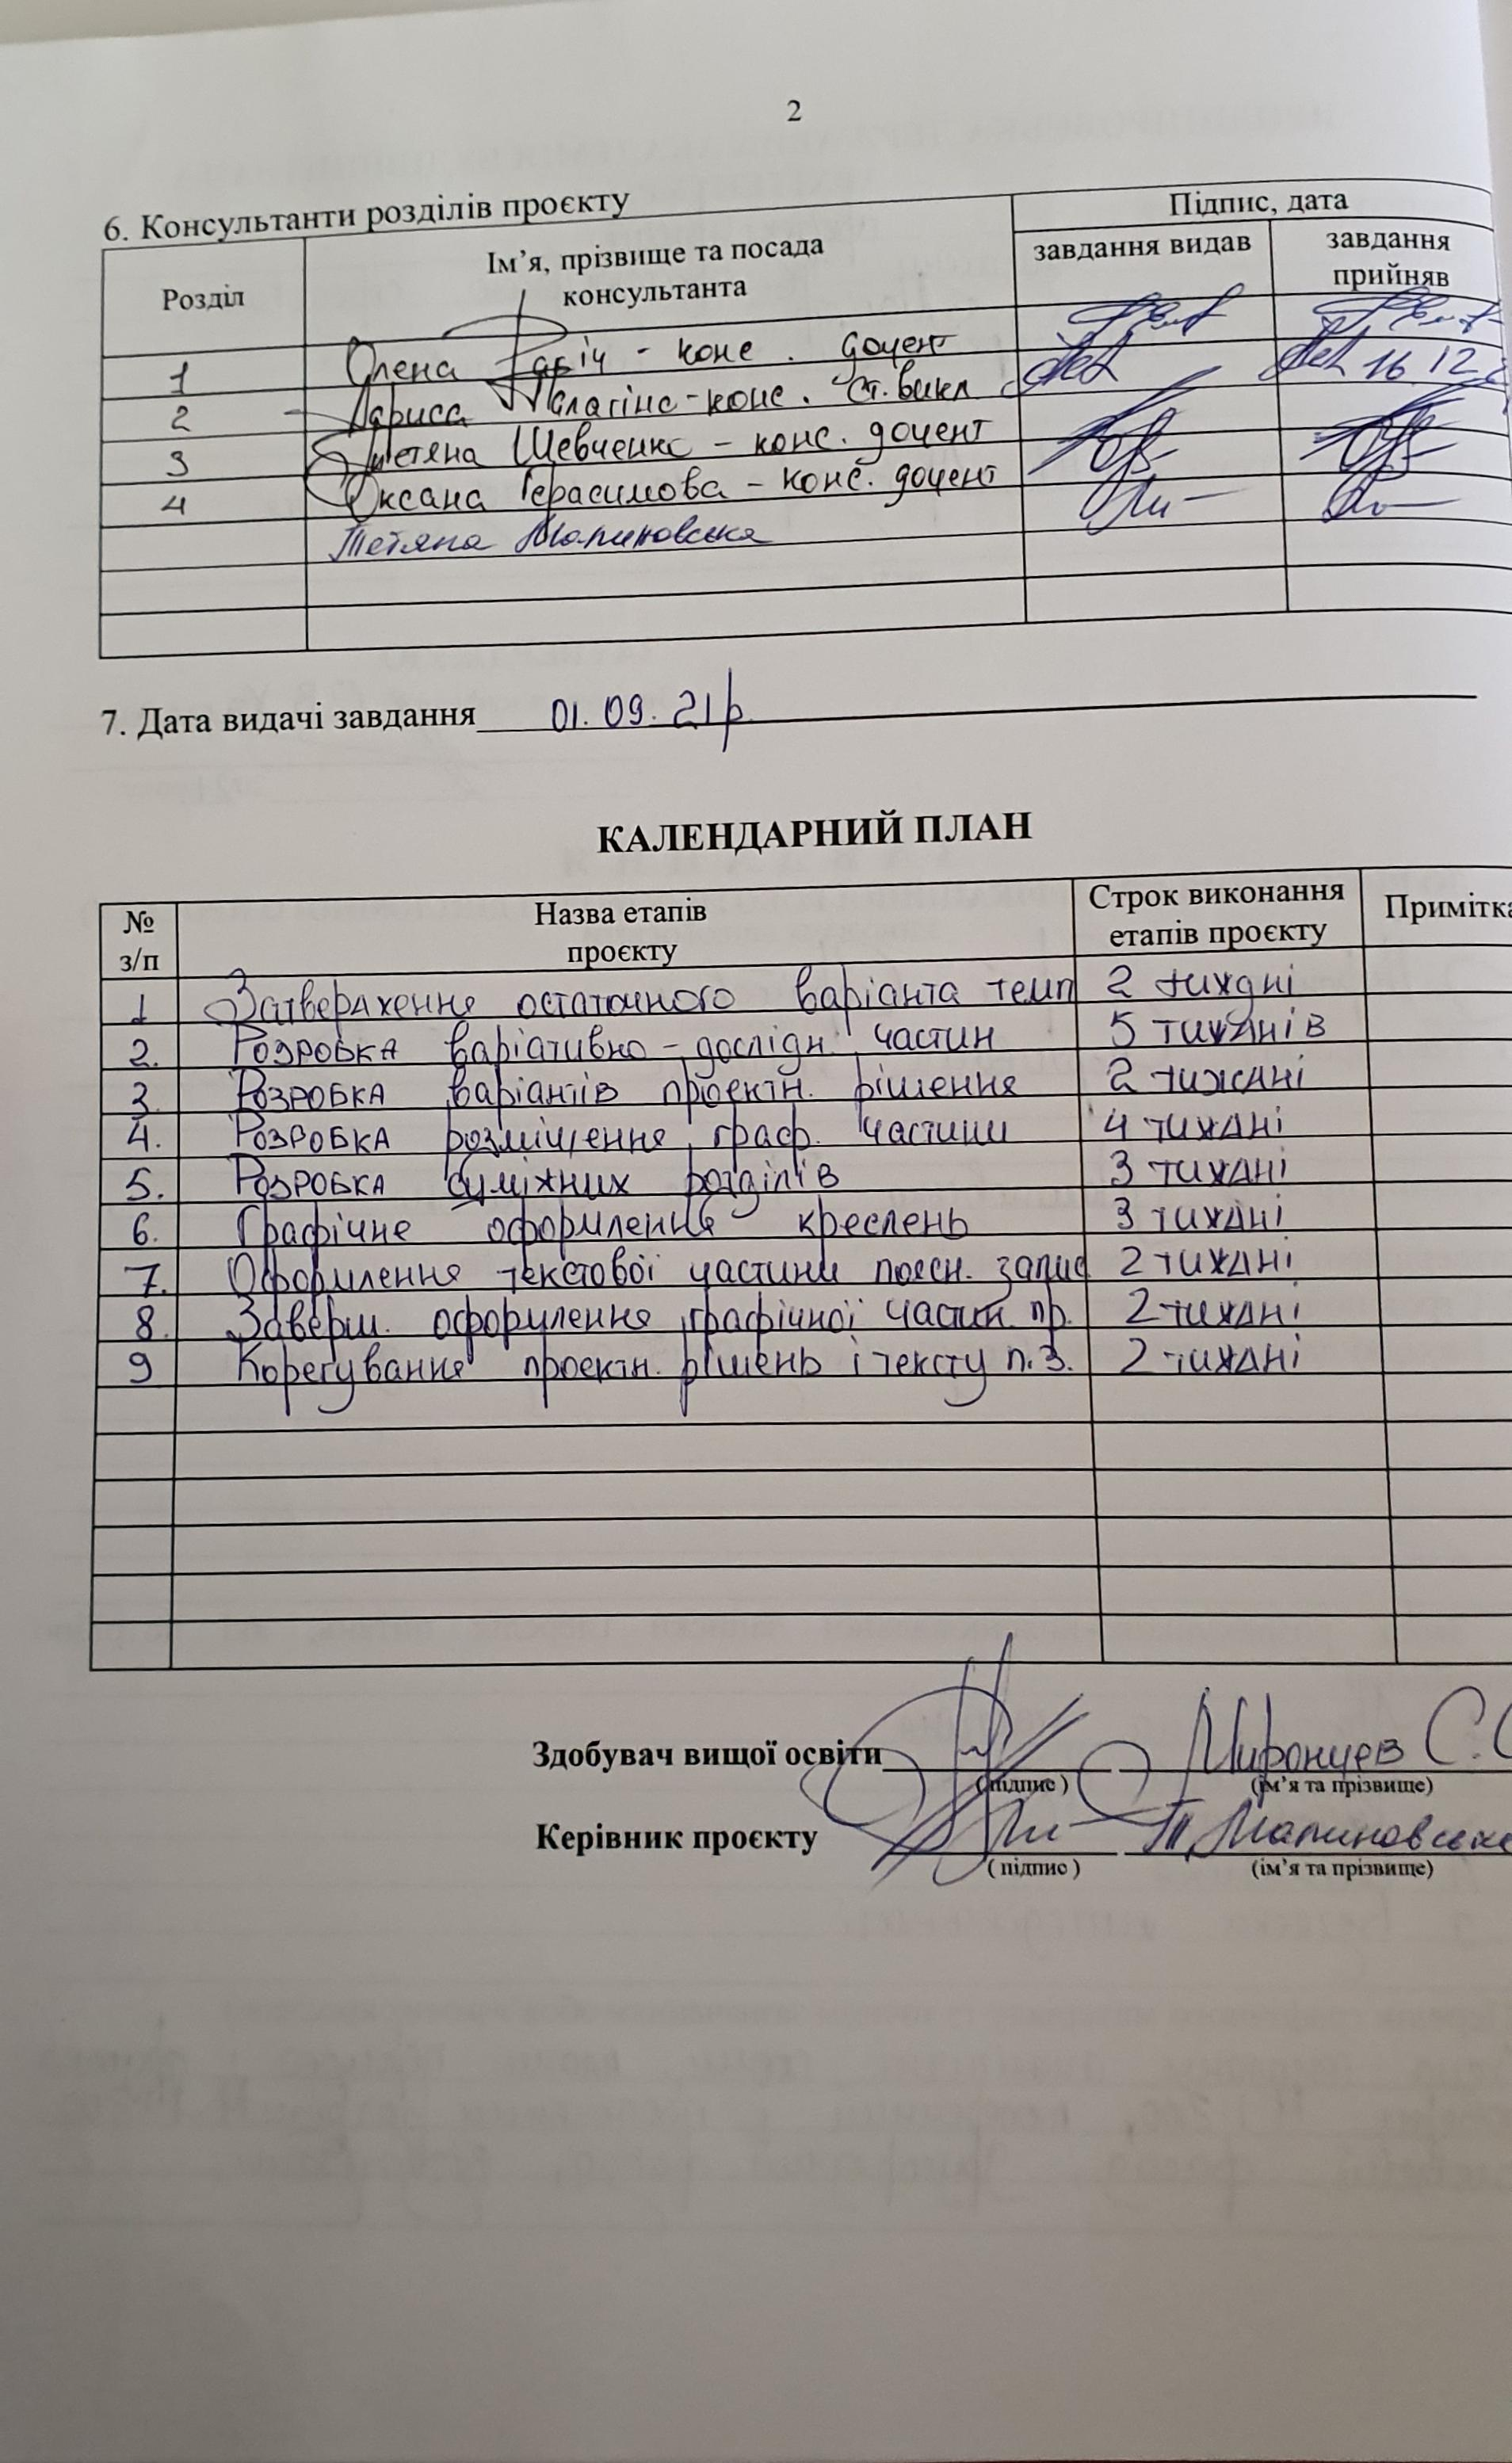 2
6. Консультанти розділів проєкту
Розділ Ім’я, прізвище та посада консультанта Підпис, дата
завдання видав завдання прийняв
1 Олена - конс. доцент
2 Лариса - конс. Ст. викл 16 12
3 Тетяна Шевченко - конс. доцент
4 Оксана Герасимова - конс. доцент
Тетяна Малиновська
7. Дата видачі завдання 01. 09. 21р
КАЛЕНДАРНИЙ ПЛАН
№ з/п Назва етапів проєкту Строк виконання етапів проєкту Примітка
1 Затвердження остаточного варіанта теми 2 тиждні
2. Розробка варіативно - дослідн. частин 5 тижднів
3. Розробка варіантів проектн. рішення 2 тиждні
4. Розробка розміщення граф. частини 4 тиждні
5. Розробка суміжних розділів 3 тиждні
6. Графічне оформлення креслень 3 тиждні
7. Оформлення текстової частини поясн. запис 2 тиждні
8. Заверш. оформлення графічної частин. пр. 2 тиждні
9 Корегування проектн. рішень і тексту п.з. 2 тиждні
Здобувач вищої освіти Миронцев С.
(підпис) (ім’я та прізвище)
Керівник проєкту Т Малиновська
(підпис) (ім’я та прізвище)